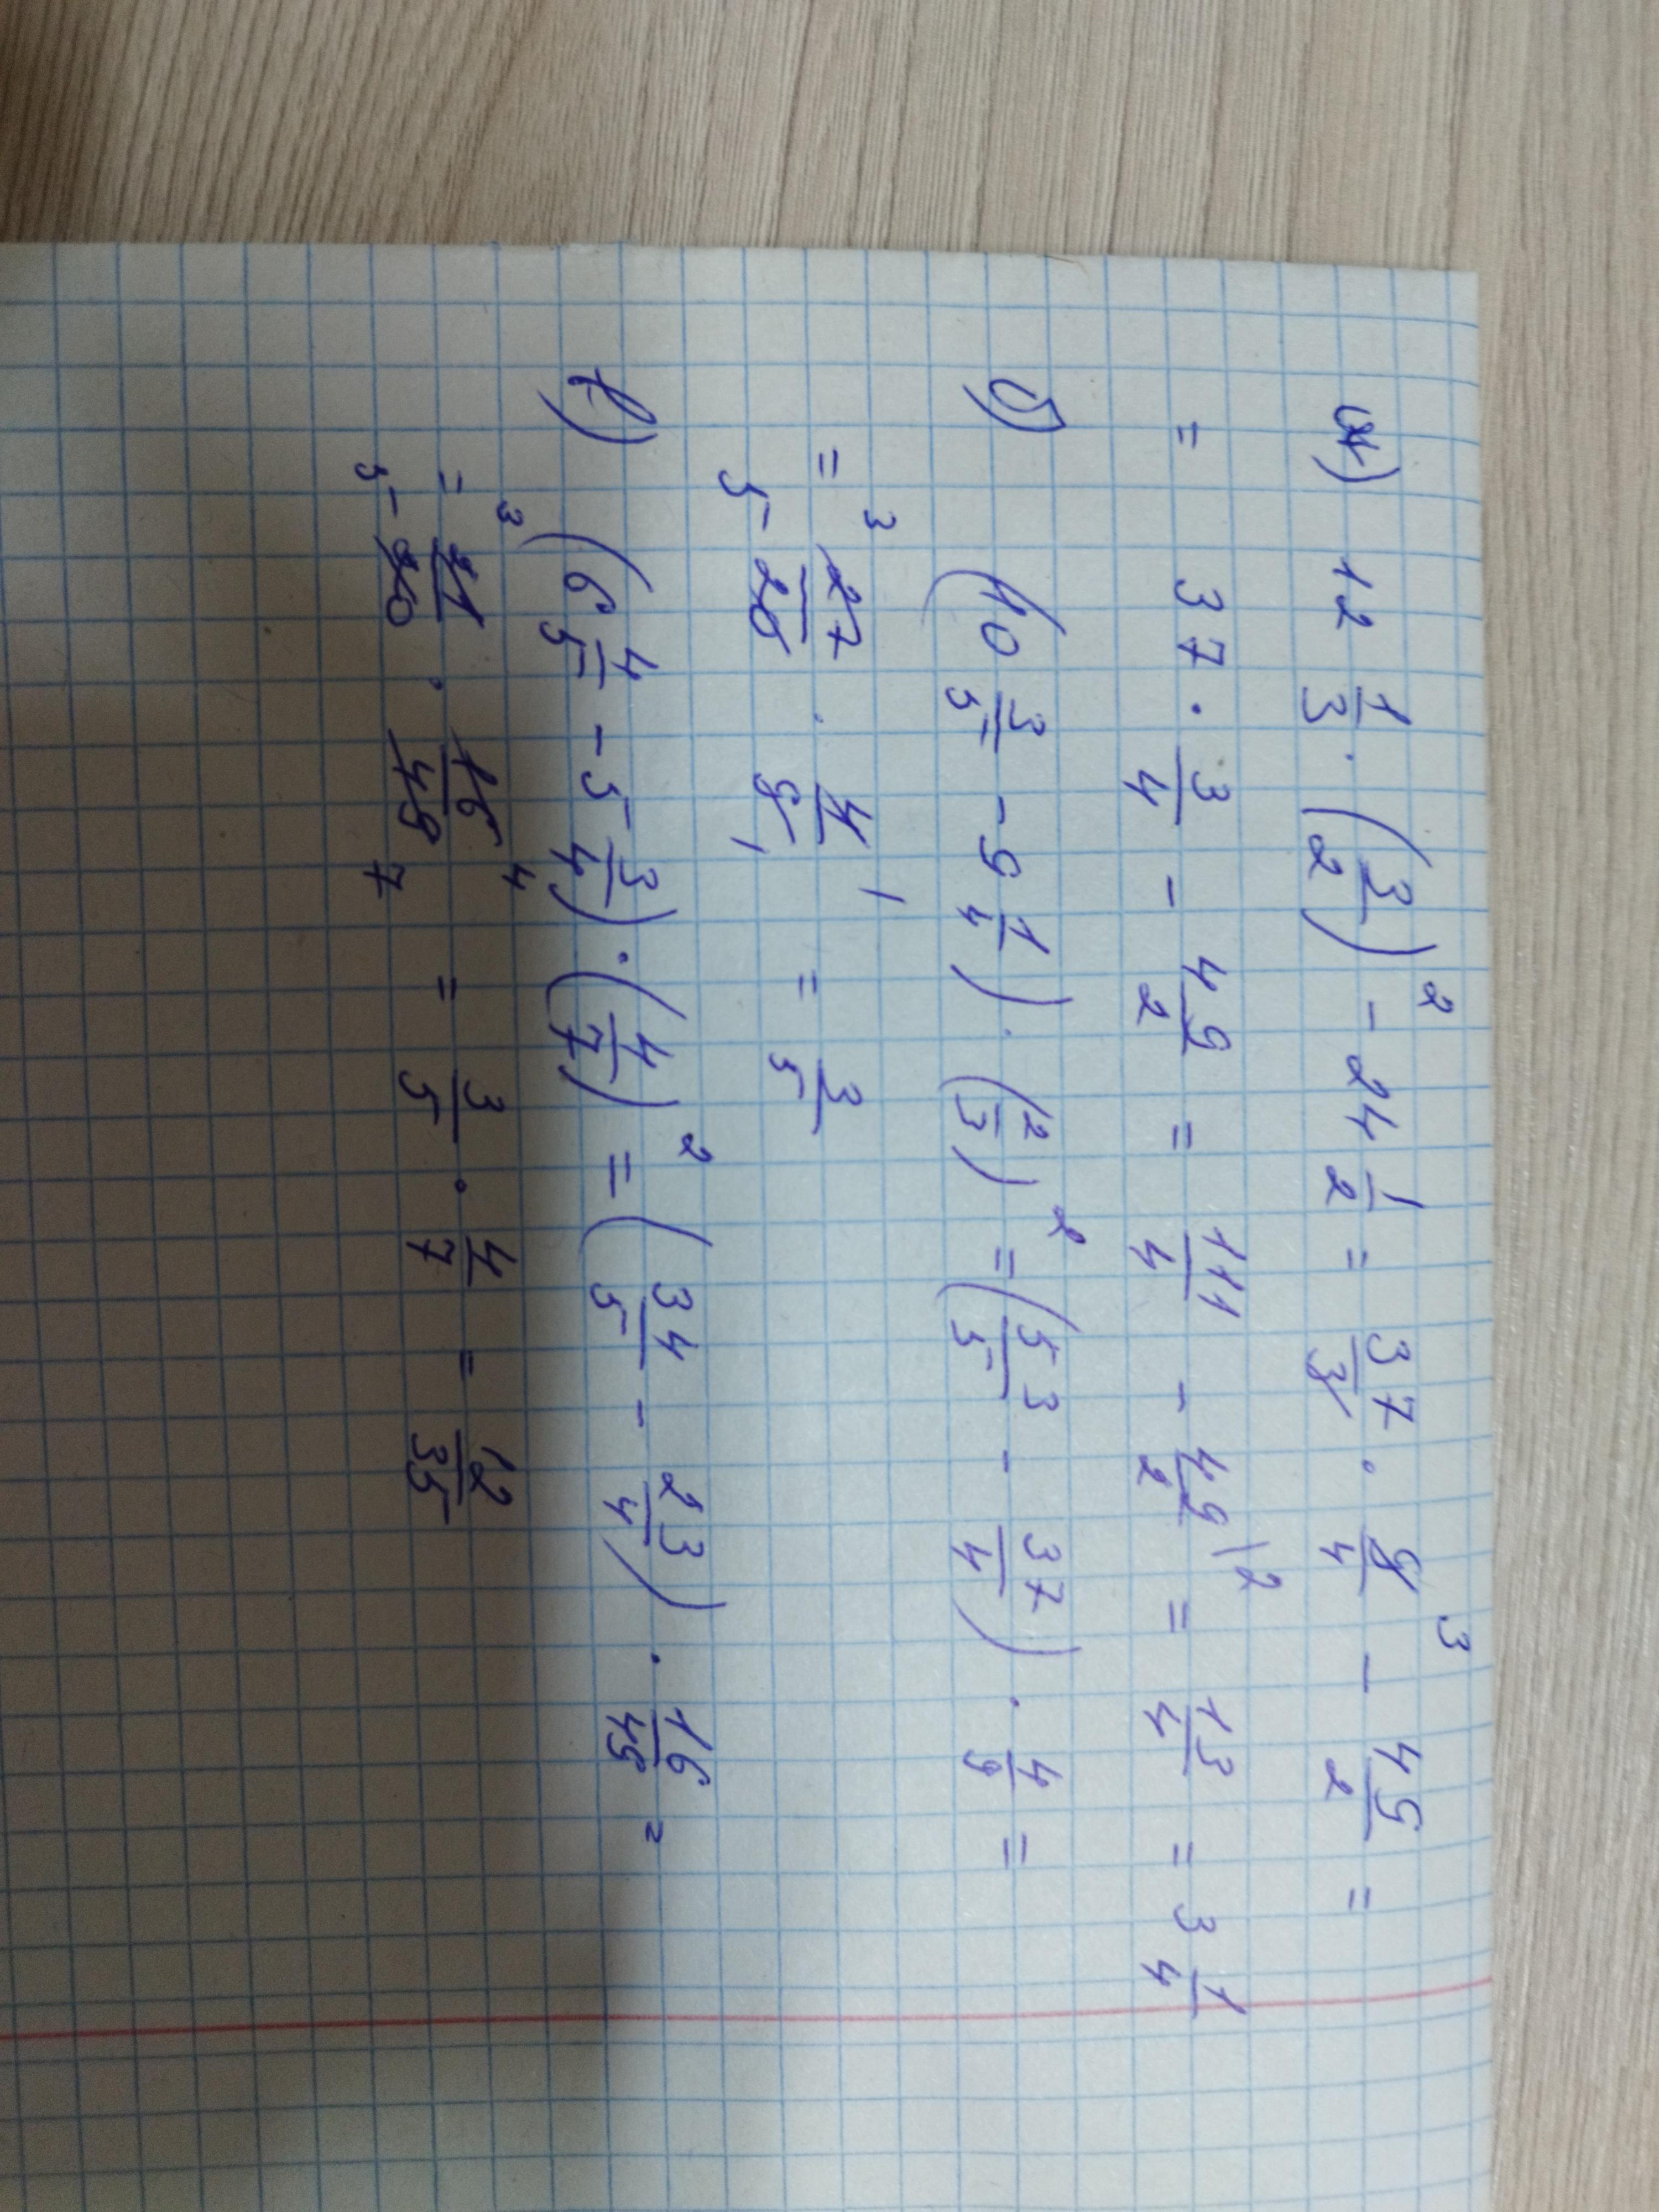 а) 12 1/3 · (3/2)² - 24 1/2 = 37/3 · 9/4 ³ - 49/2 =
= 37 · 3/4 - 49/2 = 111/4 - 49/2 \2 = 13/4 = 3 1/4
б) (10 3/5 - 9 1/4) · (2/3)² = (53/5 - 37/4) · 4/9 =
= ³ 27/20 ₅ · 4/9 ¹ ₁ = 3/5
в) (6 4/5 - 5 3/4) · (4/7)² = (34/5 - 23/4) · 16/49 =
= ³ 21/20 ₅ · 16/49 ⁴ ₇ = 3/5 · 4/7 = 12/35